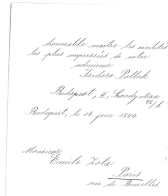 honorable maître les
les plus empressées de votre
admirateur
Isidore Pollak
Budapest, II,
Budapest, le 14 juin 1899
Monsieur
Emile Zola
Paris
rue de Bruxelles